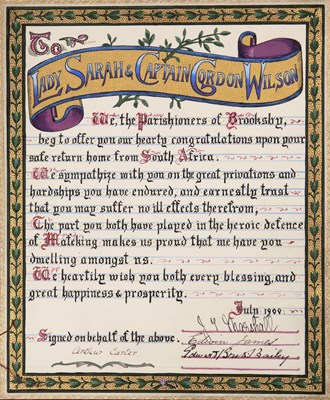 To
LADY, SARAH & CAPTAIN GORDON WILSON
We, the Parishioners of Brooksby,
beg to offer you our hearty congratulations upon your
safe return home from South Africa.
We sympathize with you on the great privations and
hardships you have endured, and earnestly trust
that you may suffer no ill effects therefrom,
The part you both have played in the heroic defence
of Mafeking makes us proud that we have you
dwelling amongst us.
We heartily wish you both every blessing, and
great happiness & prosperity.
July 1900.
Signed on behalf of the above.
Edwin James
Andrew Carter